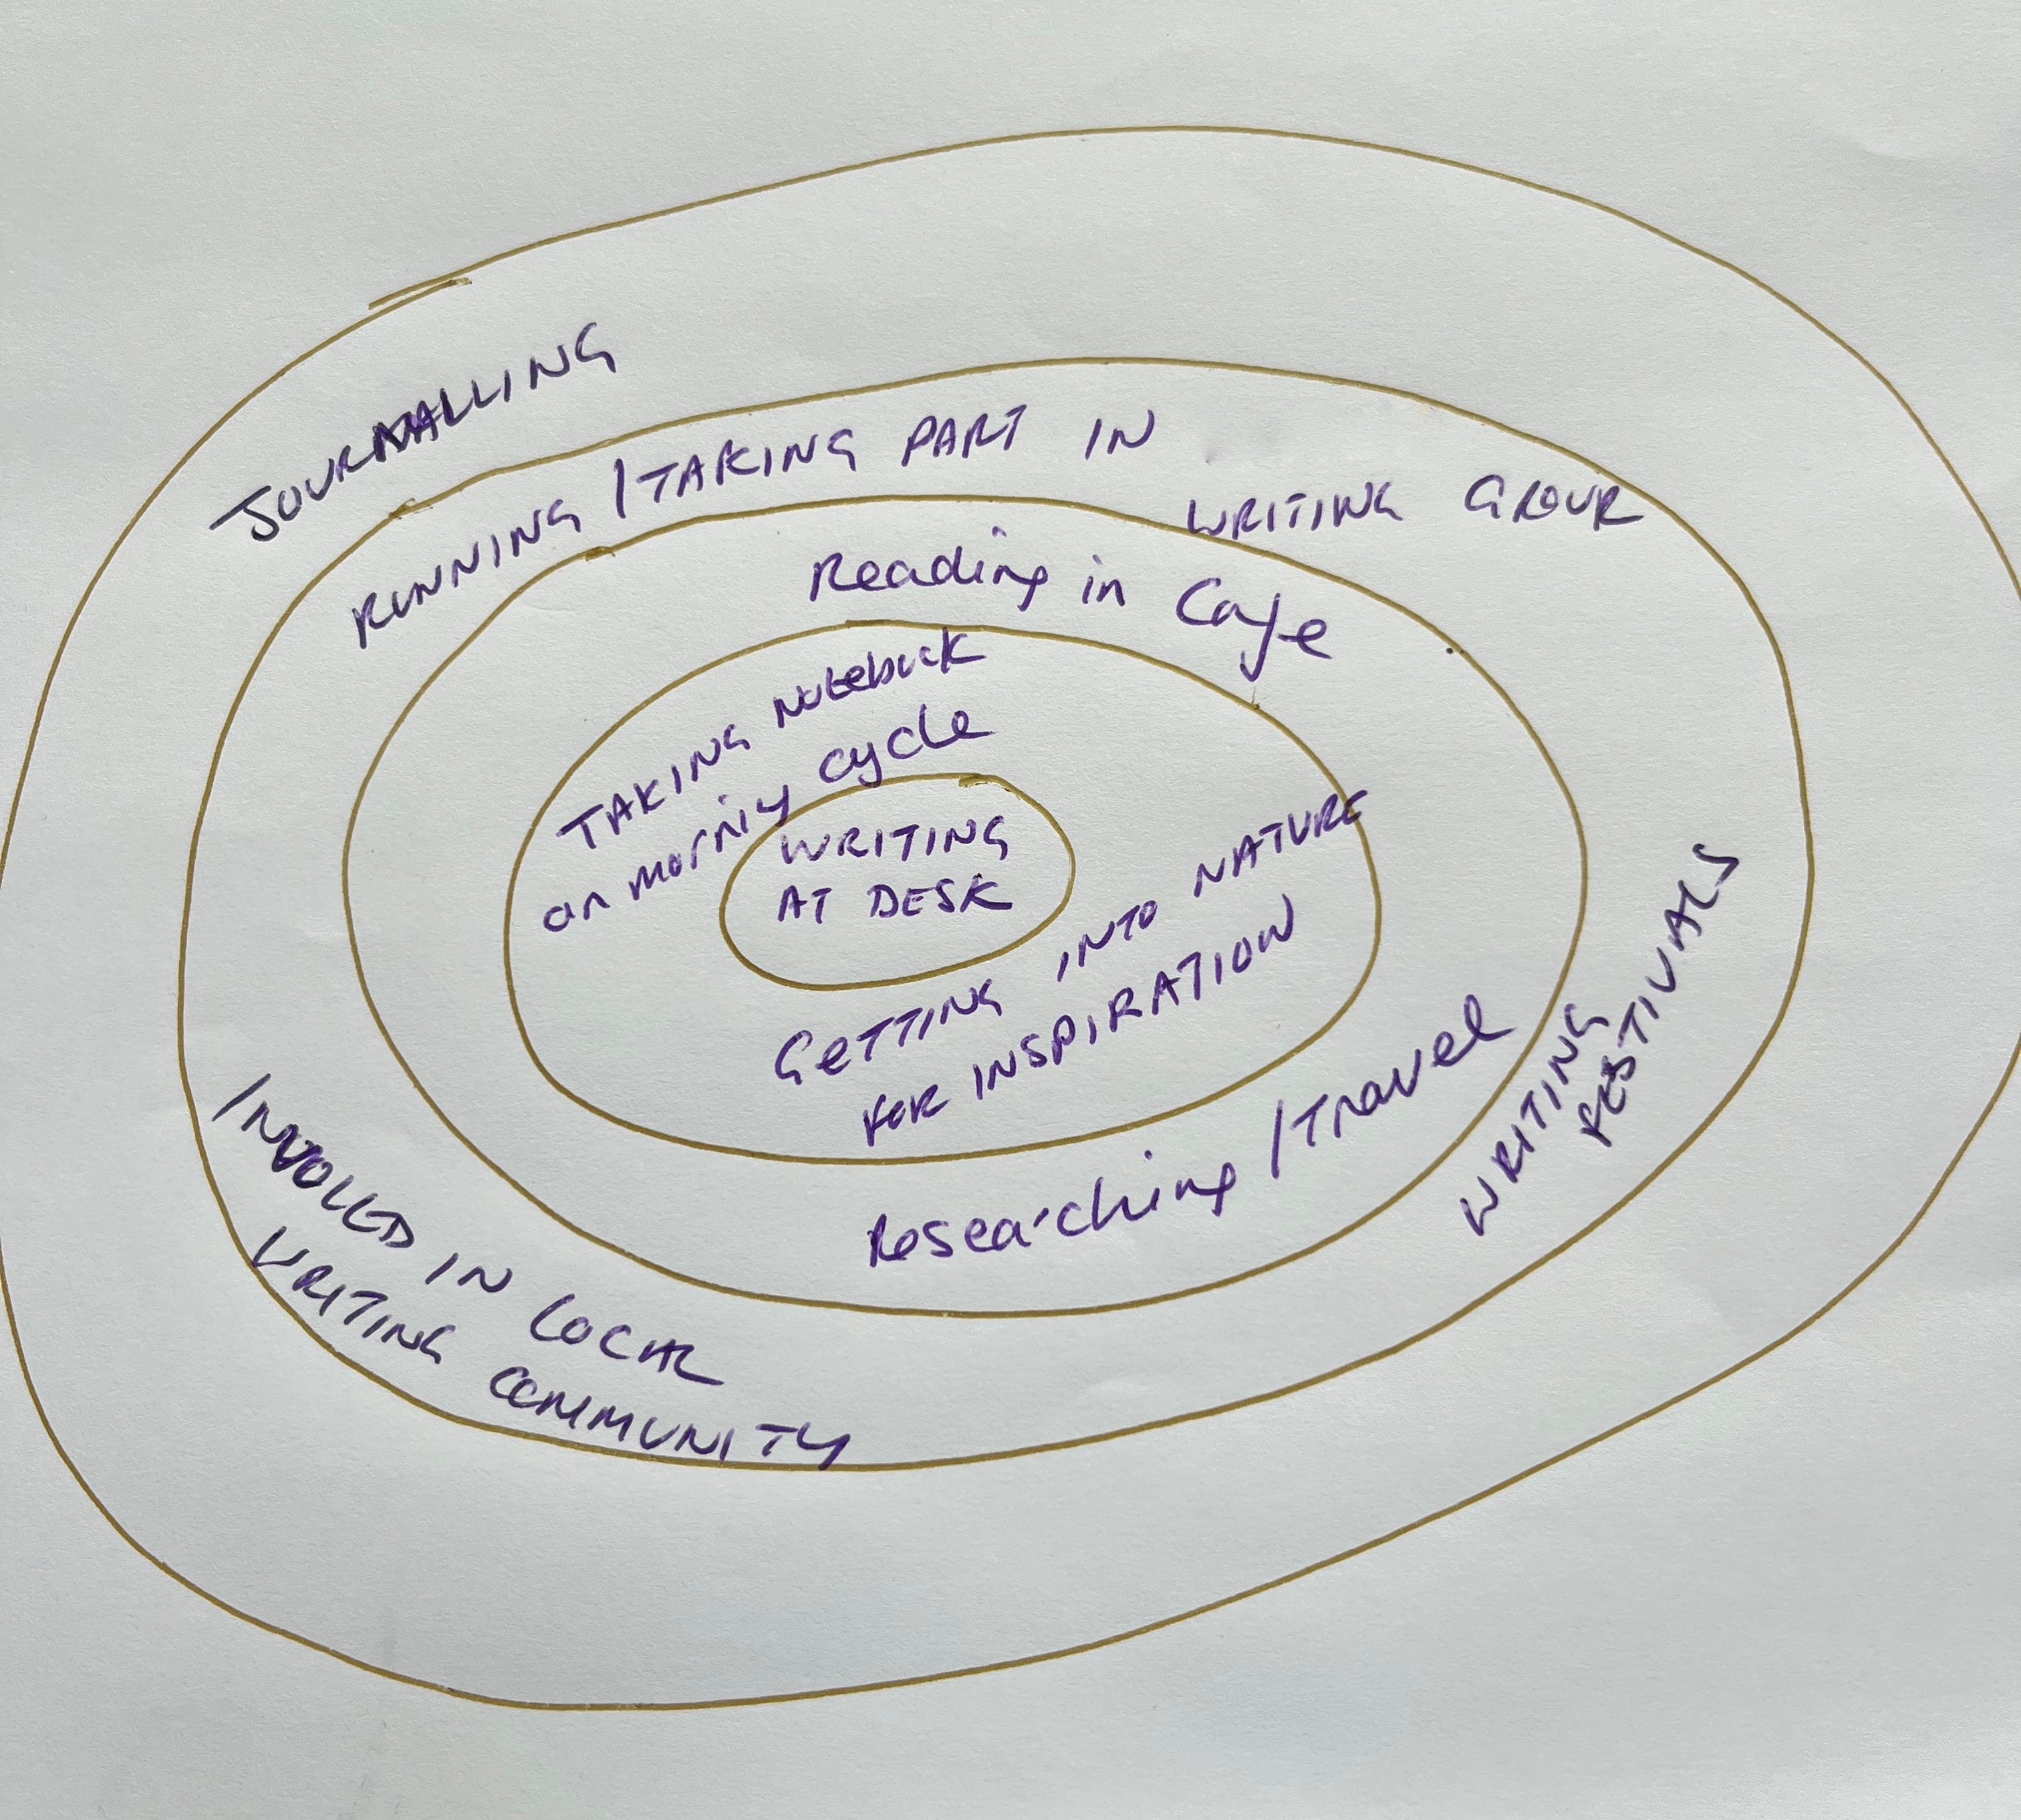 JOURNALLING
RUNNING / TAKING PART IN
WRITING GROUP
Reading in Cafe
TAKING notebook
on morning cycle
WRITING
AT DESK
GETTING INTO NATURE
FOR INSPIRATION
Researching / Travel
WRITING
FESTIVALS
INVOLED IN LOCAL
WRITING COMMUNITY